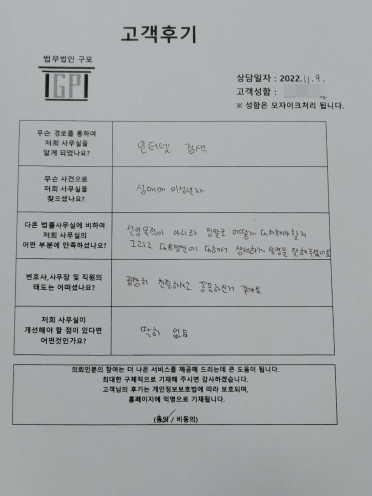 고객후기
법무법인 구포
GP
상담일자 : 2022.11.9.
고객성함 :
※ 성함은 모자이크처리 됩니다.
무슨 경로를 통하여
저희 사무실을
알게 되었나요?
인터넷 검색
무슨 사건으로
저희 사무실을
찾으셨나요?
성매매 미성년자
다른 법률사무실에 비하여
저희 사무실의
어떤 부분에 만족하셨나요?
선임목적이 아니라 정말로 어떻게 대처해야할지
그리고 대응방안에 대해서 상세하게 설명을 잘해주셨어요
변호사,사무장 및 직원의
태도는 어떠셨나요?
굉장히 친절하시고
저희 사무실이
개선해야 할 점이 있다면
어떤것인가요?
딱히 없음
의뢰인분의 참여는 더 나은 서비스를 제공해 드리는데 큰 도움이 됩니다.
최대한 구체적으로 기재해 주시면 감사하겠습니다.
고객님의 후기는 개인정보보호법에 따라 보호되며,
홈페이지에 익명으로 기재됩니다.
(동의 / 비동의)